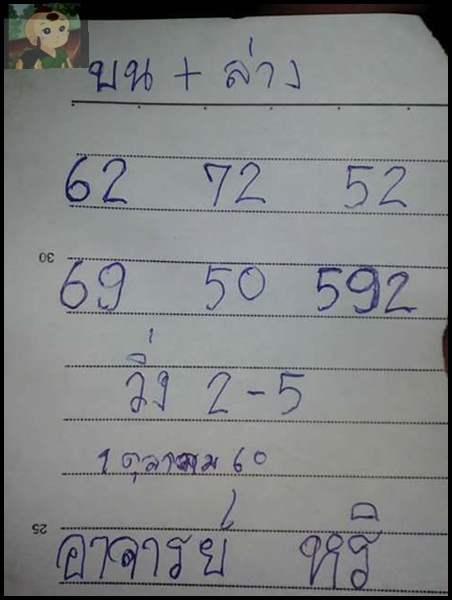 บน + ล่าง
62 72 52
30
69 50 592
วิ่ง 2-5
1 ตุลาคม 60
25
อาจารย์ หริ